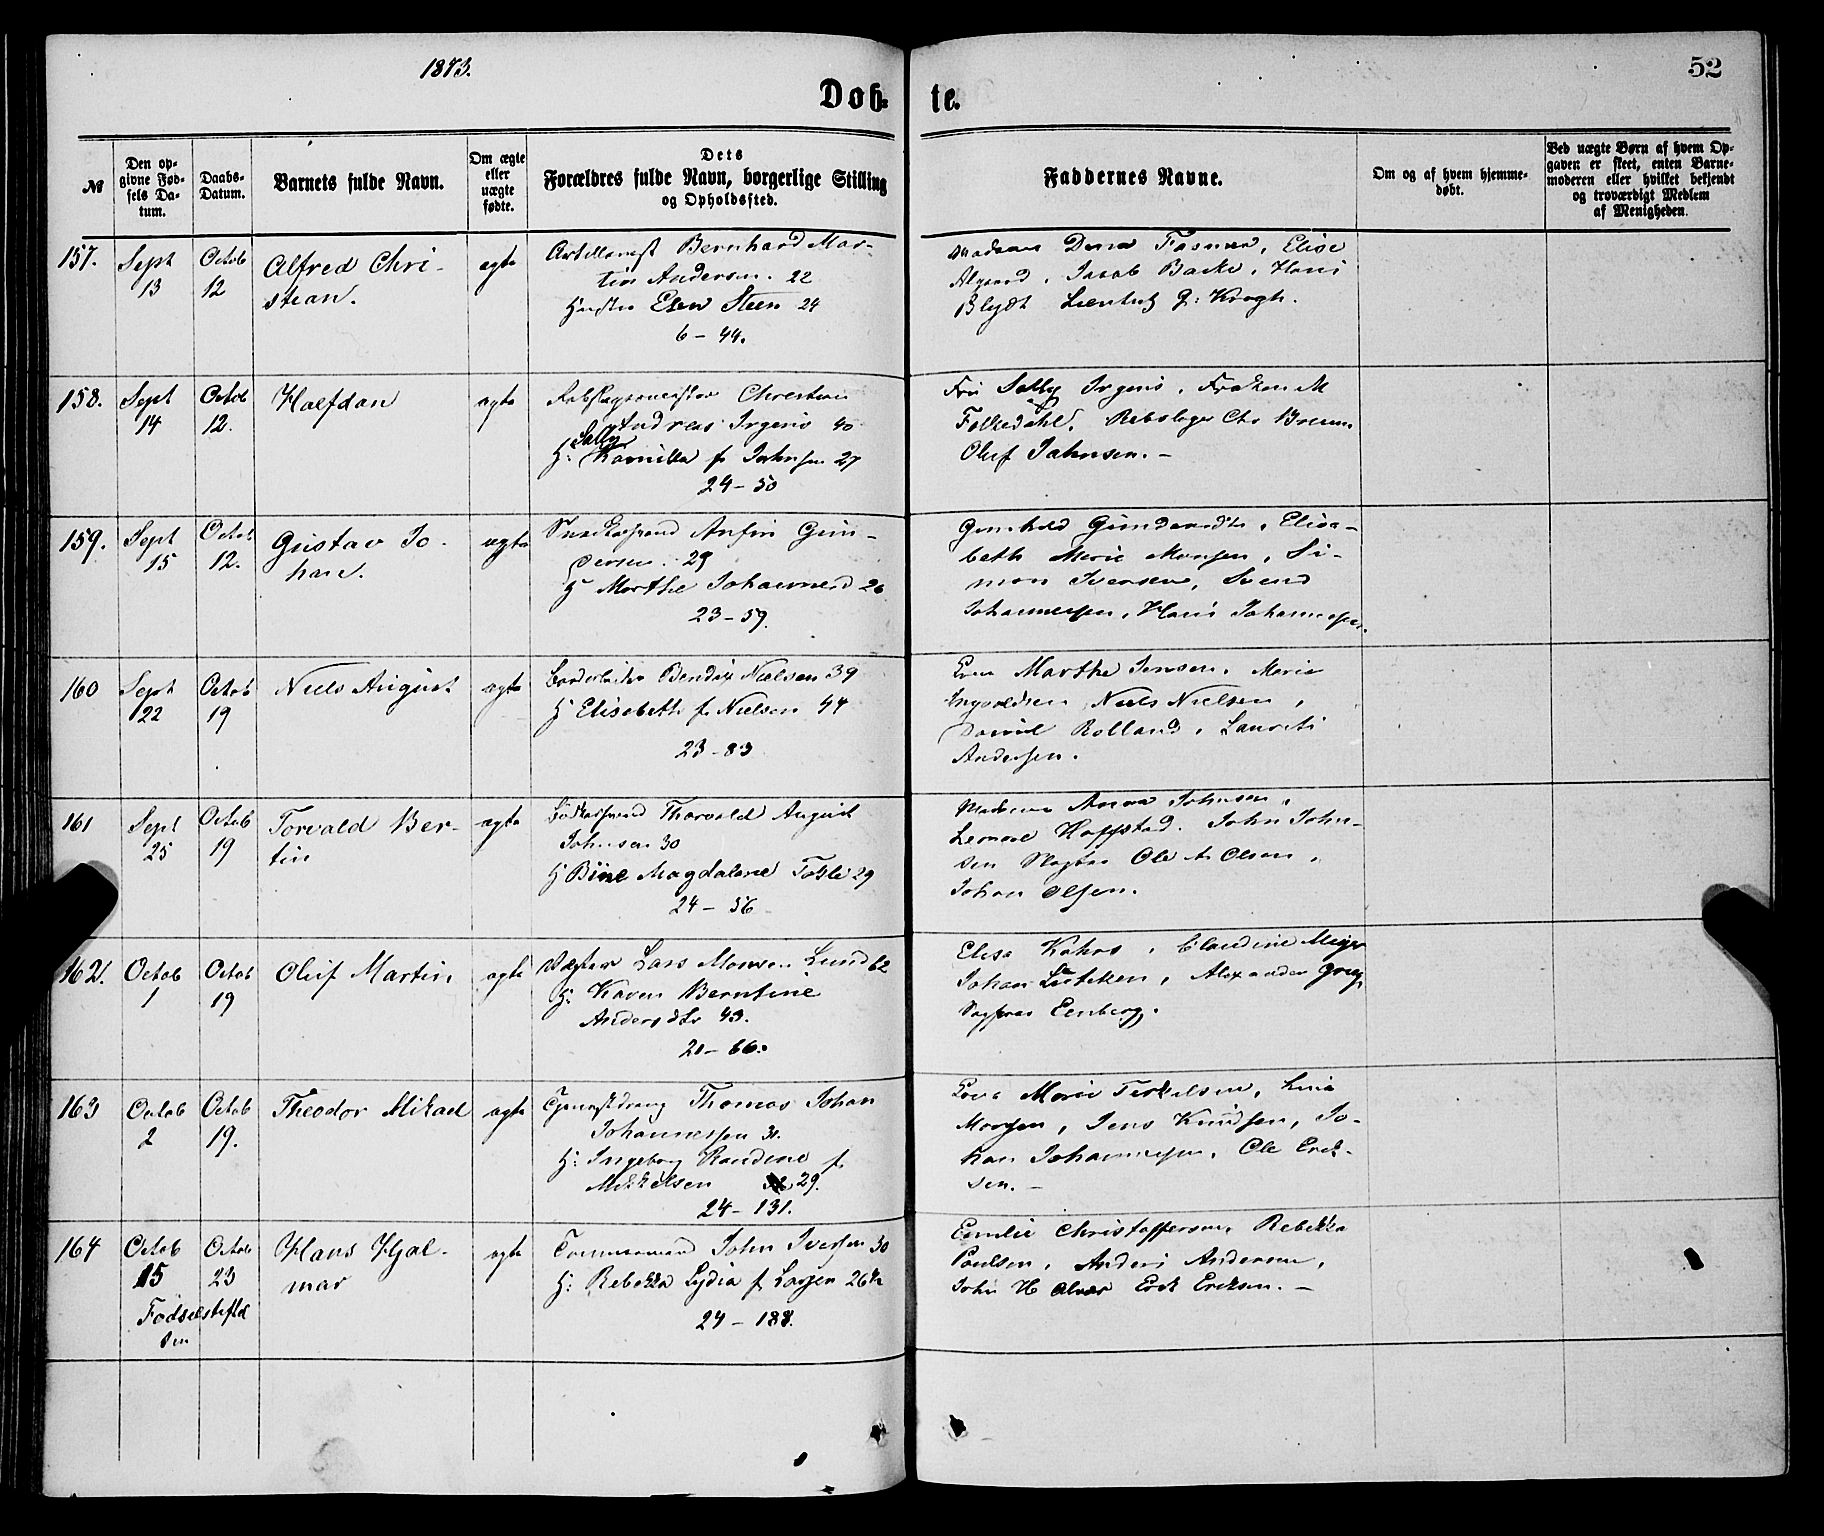 1873.
52
Døb-te.
№
Den op-
givne Fød-
sels Da-
tum.
Daabs-
Datum.
Barnets fulde Navn.
Om ægte
eller
uægte
fødte.
Dets
Forældres fulde Navn, borgerlige Stilling
og Opholdssted.
Faddernes Navne.
Om og af hvem hjemme-
døbt.
Ved uægte Børn af hvem Op-
gaven er skeet, enten Barne-
moderen eller hvilket bekjendt
og troværdigt Medlem
af Menigheden.
157.
Sept
13
Octob
12
Alfred Chri-
stian.
ægte
Artillerist Bernhard Mar-
tin Andersen. 22
Hustru Elen Steen 24
6 - 44.
Madame Dina Fasmer, Elise
Jacob Backe, Hans
Blydt Lieutn J: Krogh.
158.
Sept
14
Octob
12.
Halfdan
ægte
Rebslagermester Christian
Andreas Irgens 40
Sally
H: Kamilla f Jahnsen 27
24 - 50
Fru Sally Irgens, Frøken M
Falkedahl, Rebslager Chr Bruun
Oluf Jahnsen. -
159.
Sept
15
Octob
12.
Gustav Jo-
han.
ægte
Snedkersvend Anfin Gun-
dersen 29
H Marthe Johannesd 26
23 - 59.
Gunhild Gundersdtr, Elisa-
beth Marie Monsen, Si-
mon Iversen, Svend
Johannessen, Hans Johannessen.
160
Sept
22
Octob
19
Niels August
ægte
Bendix Nielsen 39
H Elisabeth f Nielsen 44
23 - 83
Marthe Jensen, Marie
Ingvaldsen, Niels Nielsen,
Daniel Rolland, Laurits
Andersen.
161
Sept
25
Octob
19
Torvald Ber-
tin
ægte
Bødkersvend Thorvald August
Johnsen 30
H Bine Magdalene Tofte 29
24 - 56
Madame Anna Johnsen,
Leonore Hoffstad. John John-
sen Slagter Ole A Olsen,
Johan Olsen.
162.
Octob
1
Octob
19
Oluf Martin
ægte
Vægter Lars Monsen Lund 62
H: Karen Berntine
Andersdtr 43.
20 - 66.
Elise Kahrs, Claudine Meyer
Johan Lütcken, Alexander Grieg
Eenberg.
163
Octob
2
Octob
19.
Theodor Mikael
ægte
Tjenestdreng Thomas Johan
Johannessen 31.
H: Ingeborg Randine f
Mikkelsen 29.
24 - 131.
Marie Terkelsen,
Monsen, Jens Knudsen, Jo-
han Johannessen, Ole Erik-
sen. -
164
Octob
15
Fødselsstiftel
sen
Octob
23
Hans Hjal-
mar
ægte
Tømmermand John Iversen 30
H: Rebekka Lydia f Larsen 26 ½
24 - 188.
Emilie Christoffersen, Rebekka
Paulsen, Anders Andersen,
John H Erik Eriksen. -